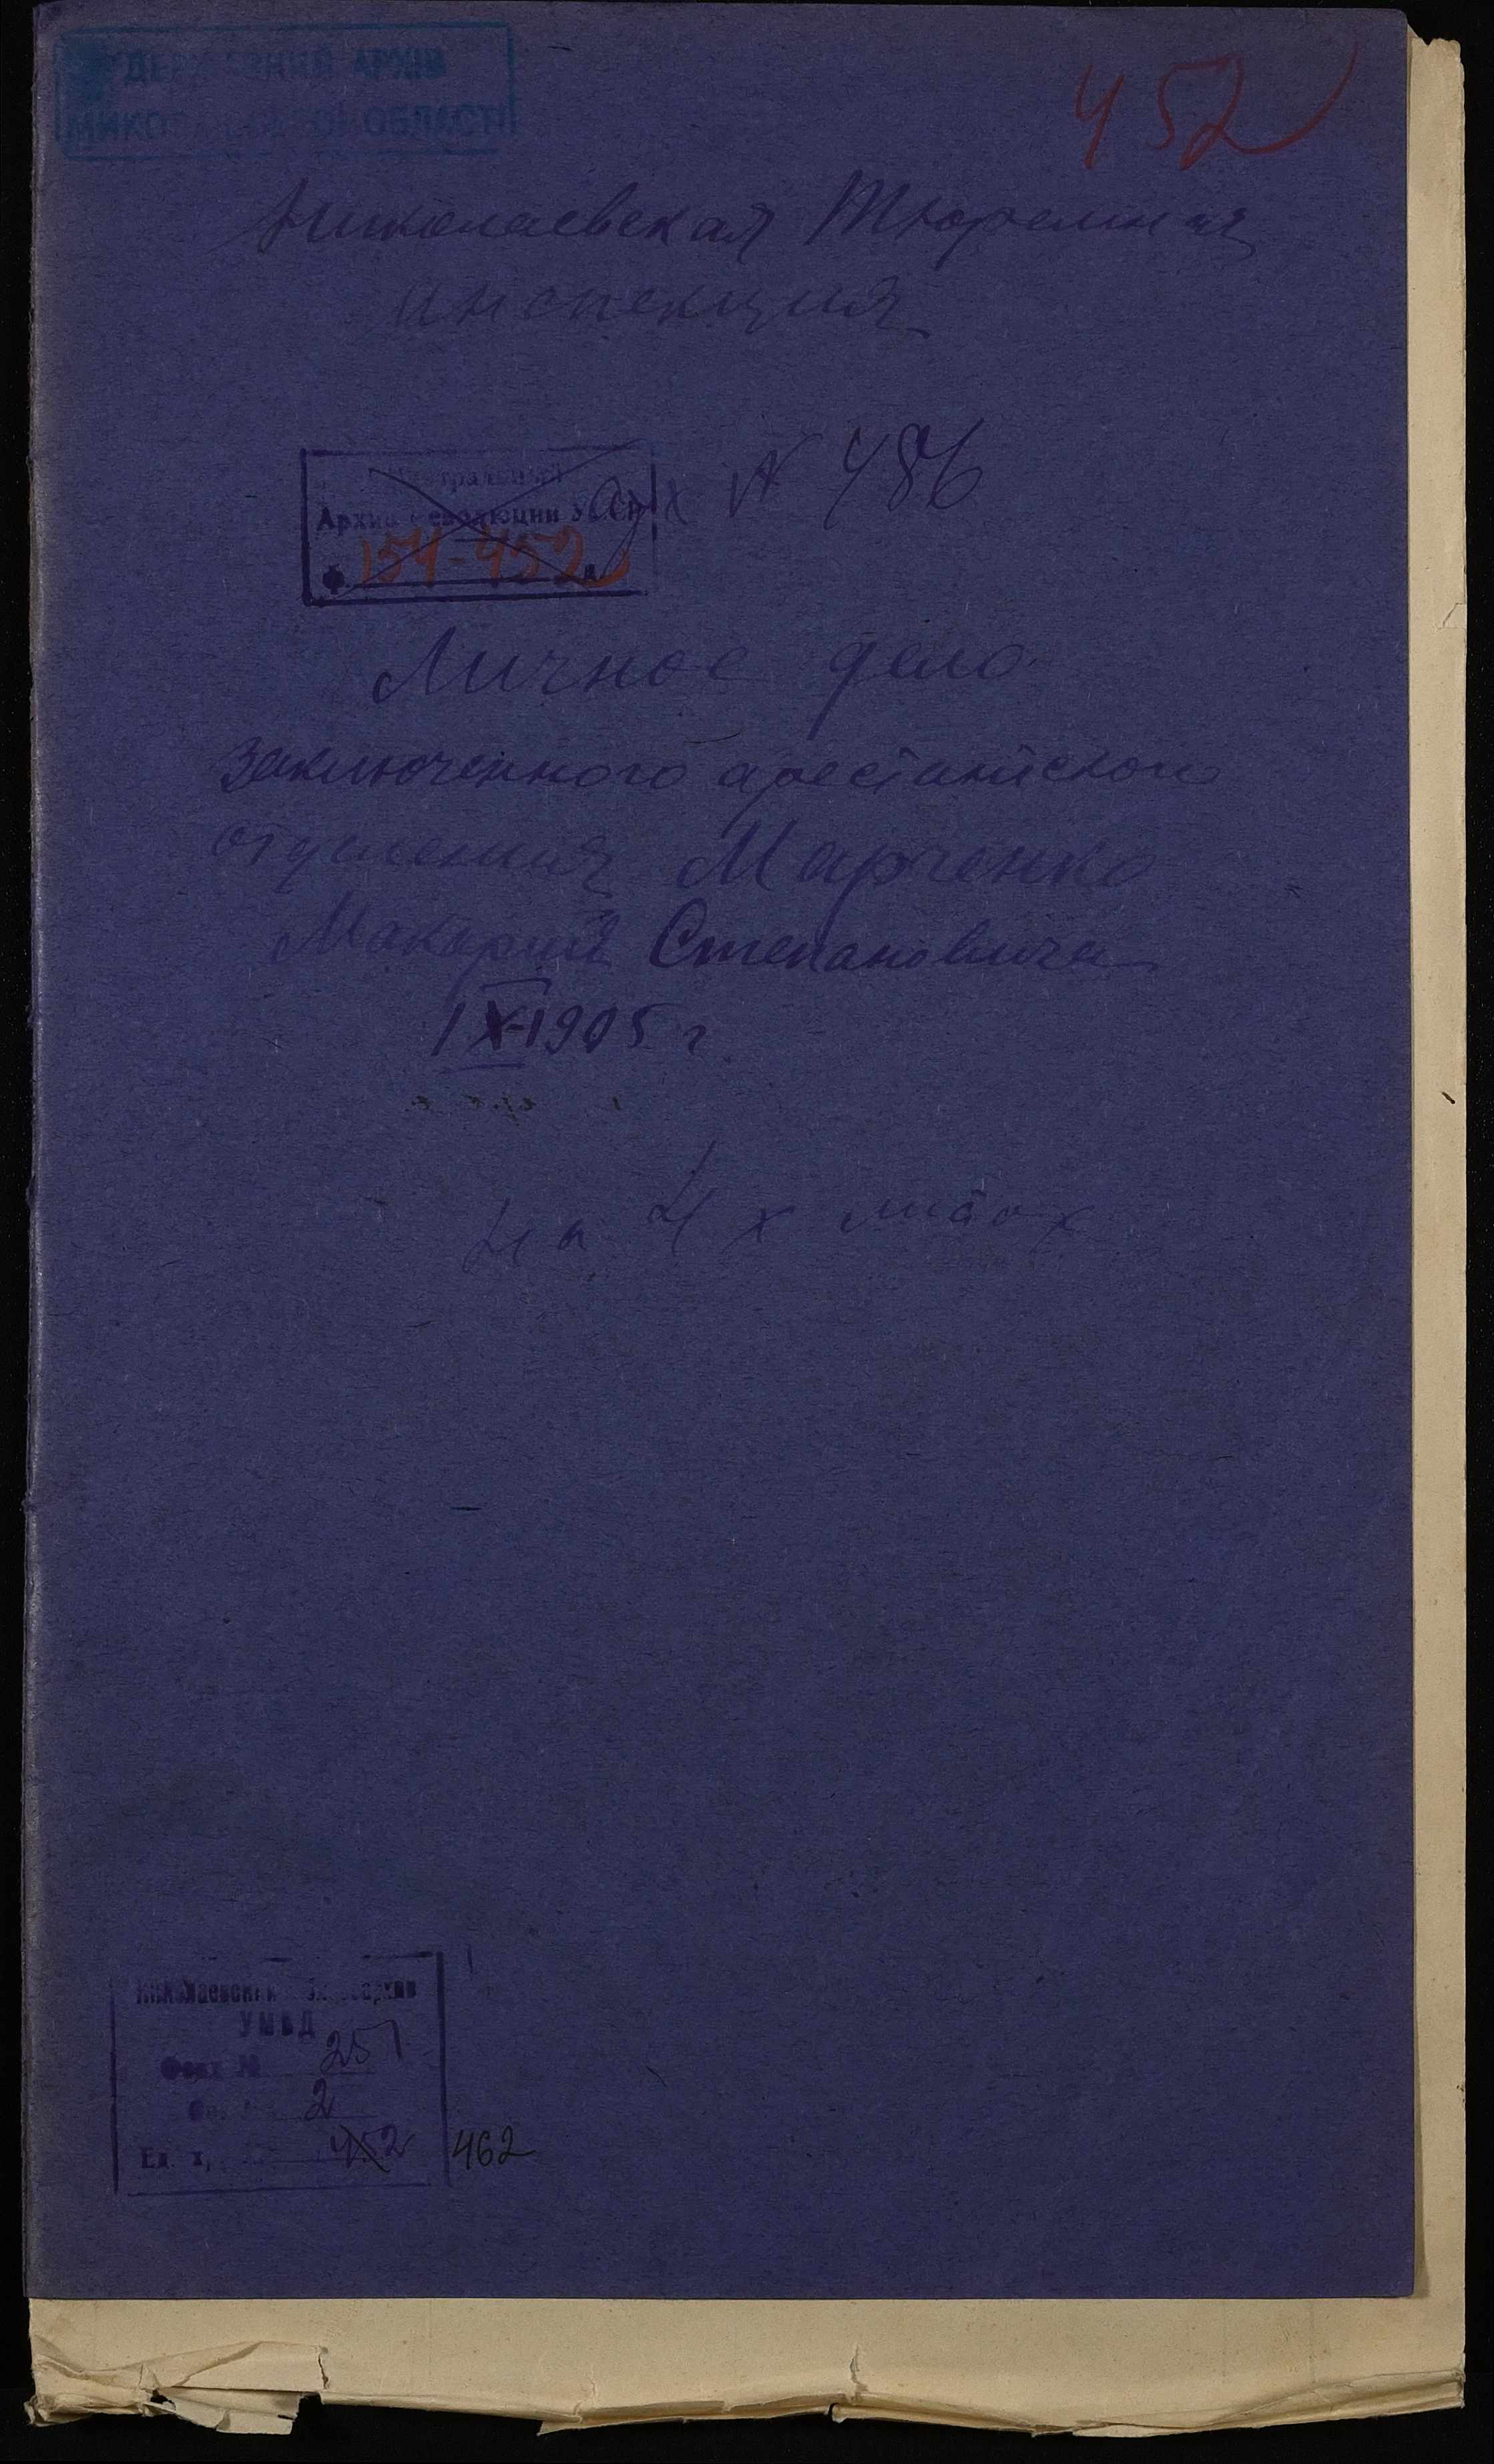 ДЕРЖАВНИЙ АРХІВ
МИКОЛАЇВСЬКОЇ ОБЛАСТІ
452
Николаевская Тюремная
инспекция
Центральный
Архив Революции УССР
Ф. 154-452 д.
св х № 486
Личное дело
заключенного арестантского
отделения Марченко
Макария Степановича
IX-1905 г.
на 4х листах
Николаевский Обл. Госархив
УМВД
Фонд № 251
Оп. № 2
Ед. х, 452 462